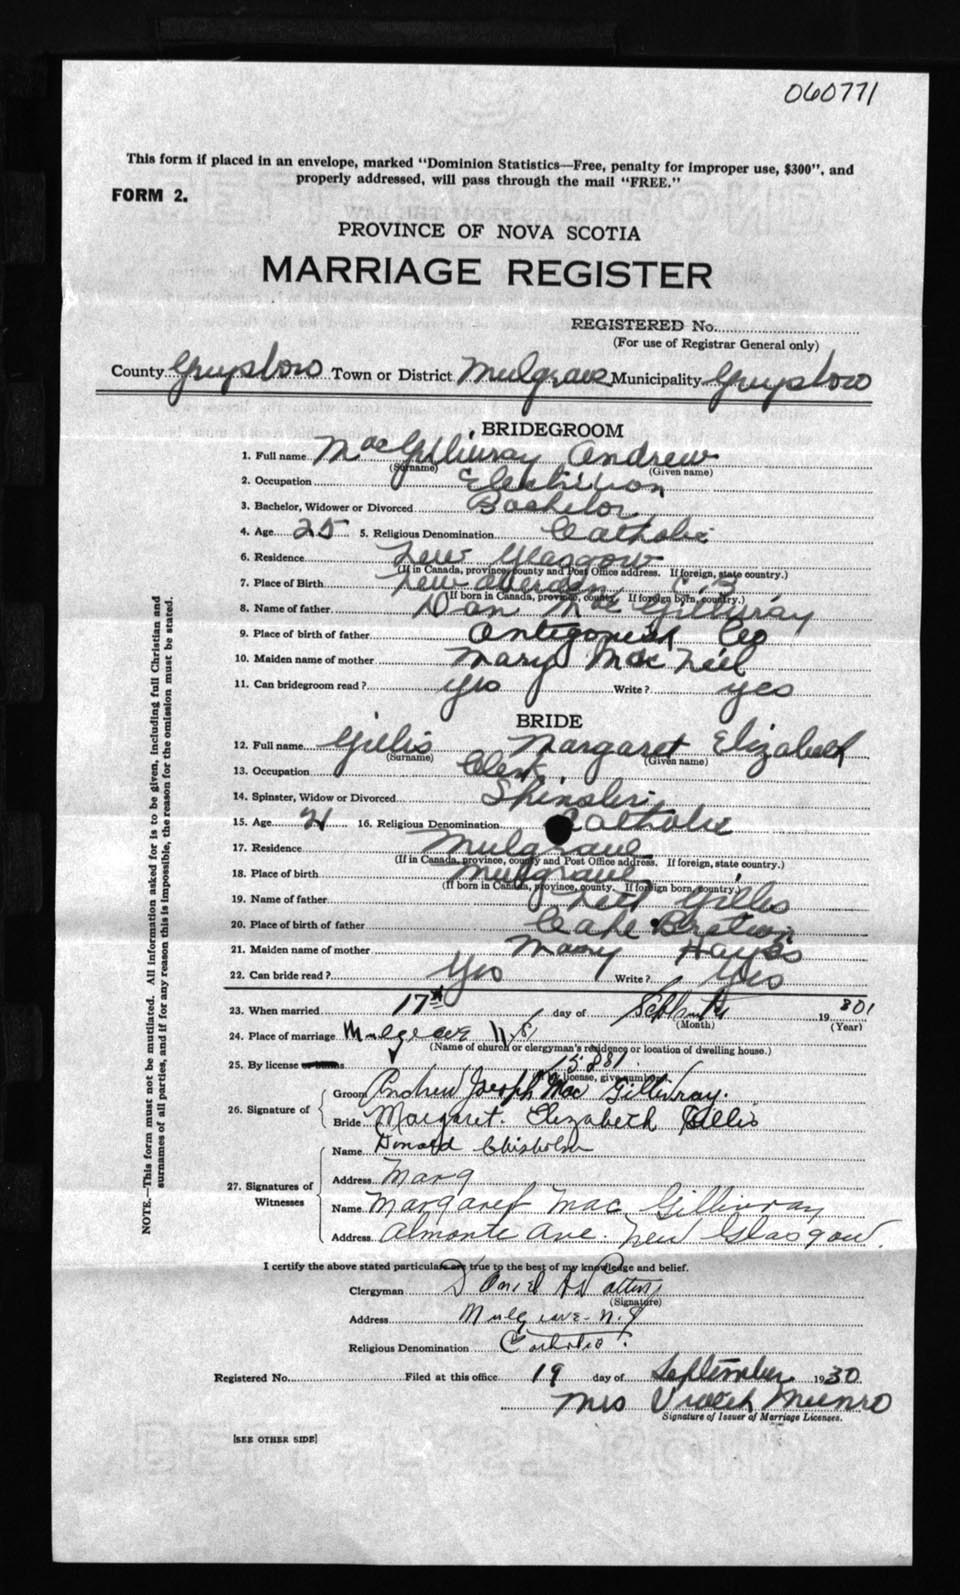 060771
This form if placed in an envelope, marked "Dominion Statistics—Free, penalty for improper use, $300", and
properly addressed, will pass through the mail "FREE."
FORM 2.
PROVINCE OF NOVA SCOTIA
MARRIAGE REGISTER
REGISTERED No.
(For use of Registrar General only)
County Guysboro Town or District Mulgrave Municipality Guysboro
BRIDEGROOM
1. Full name MacGillivray Andrew
(Surname) (Given name)
2. Occupation Electrician
3. Bachelor, Widower or Divorced Bachelor
4. Age 25 5. Religious Denomination Catholic
6. Residence New Glasgow
(If in Canada, province, county and Post Office address. If foreign, state country.)
7. Place of Birth New Aberdeen C.B
(If born in Canada, province, county. If foreign born, country.)
8. Name of father Dan MacGillivray
9. Place of birth of father Antigonish Co
10. Maiden name of mother Mary MacNeil
11. Can bridegroom read? yes Write? yes
BRIDE
12. Full name Gillis Margaret Elizabeth
(Surname) (Given name)
13. Occupation Clerk
14. Spinster, Widow or Divorced Spinster
15. Age 21 16. Religious Denomination Catholic
17. Residence Mulgrave
(If in Canada, province, county and Post Office address. If foreign, state country.)
18. Place of birth Mulgrave
(If born in Canada, province, county. If foreign born, country.)
19. Name of father Neil Gillis
20. Place of birth of father Cape Breton
21. Maiden name of mother Mary Hayes
22. Can bride read? Yes Write? Yes
23. When married 17th day of September 19
(Month) (Year)
24. Place of marriage Mulgrave N.S.
(Name of church or clergyman's residence or location of dwelling house.)
25. By license 15881
(If license, give number)
26. Signature of
Groom Andrew Joseph MacGillivray.
Bride Margaret Elizabeth Gillis
27. Signatures of Witnesses
Name Donald Chisholm
Address Mulg
Name Margaret MacGillivray
Address Almonte Ave. New Glasgow.
I certify the above stated particulars are true to the best of my knowledge and belief.
Clergyman Daniel
(Signature)
Address Mulgrave N.S
Religious Denomination Catholic.
Registered No. Filed at this office 19 day of September 1930
Mrs Munro
Signature of Issuer of Marriage Licenses.
[SEE OTHER SIDE]
NOTE.—This form must not be mutilated. All information asked for is to be given, including full Christian and
surnames of all parties, and if for any reason this is impossible, the reason for the omission must be stated.